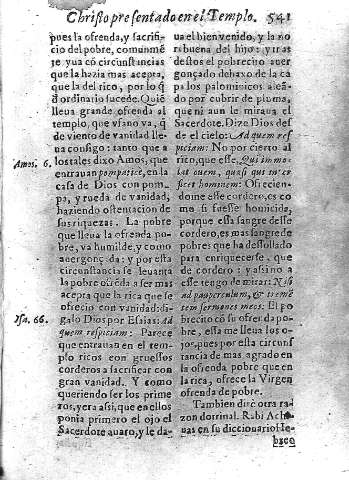 Christo presentado en el Templo. 541
pues la ofrenda, y sacrifi-
cio del pobre, comunmē
te yua cō circunstancias
que la hazia mas acepta,
que la del rico, por lo q̄
d̄ ordinario sucede. Quiē
lleua grande ofrenda al
templo, que vfano va, q̄
de viento de vanidad lle-
ua consigo: tanto que a
los tales dixo Amos, que
Amos. 6.
entrauan pompatice, en la
casa de Dios con pom-
pa, y rueda de vanidad,
haziendo ostentacion de
sus riquezas. La pobre
que lleua la ofrenda po-
bre, va humilde, y como
auergonçada: y por esta
circunstancia se leuanta
la pobre ofrēda a ser mas
acepta que la rica que se
ofrecio con vanidad: di-
galo Dios por Esaias: ad
Isa. 66.
quem respiciam: Parece
que entrauan en el tem-
plo ricos con gruessos
corderos a sacrificar con
gran vanidad. Y como
queriendo ser los prime
ros, yera assi, que en ellos
ponia primero el ojo el
Sacerdote auaro, y le da-
ua el bienvenido, y la no
ribuena del hijo: y tras
destos el pobrecito auer
gonçado debaxo de la ca
pa los palominicos alea-
do por cubrir de pluma,
que ni aun le miraua el
Sacerdote. Dize Dios des
de el cielo: Ad quem ref
piciam: No por cierto al
rico, que esse, Qui immo-
lat ouem, quasi qui inter
ficet hominem: Ofrecien-
dome esse cordero, es co
mo si fuesse homicida,
porque essa sangre desse
cordero, es mas sangre de
pobres que ha dessollado
para enriquecerse, que
de cordero: y assi no a
esse tengo de mirar: Nisi
ad pauperculum, & tremē
tem sermones meos. El po
brecito cō su ofrēda po-
bre, essa me lleua los o-
jos, pues por esta circuns
tancia de mas agrado en
la ofrenda pobre que en
la rica, ofrece la Virgen
ofrenda de pobre.
Tambien dirē otra ra-
zon dotrinal. Rabi Ach-
uas en su diccionario He-
breo